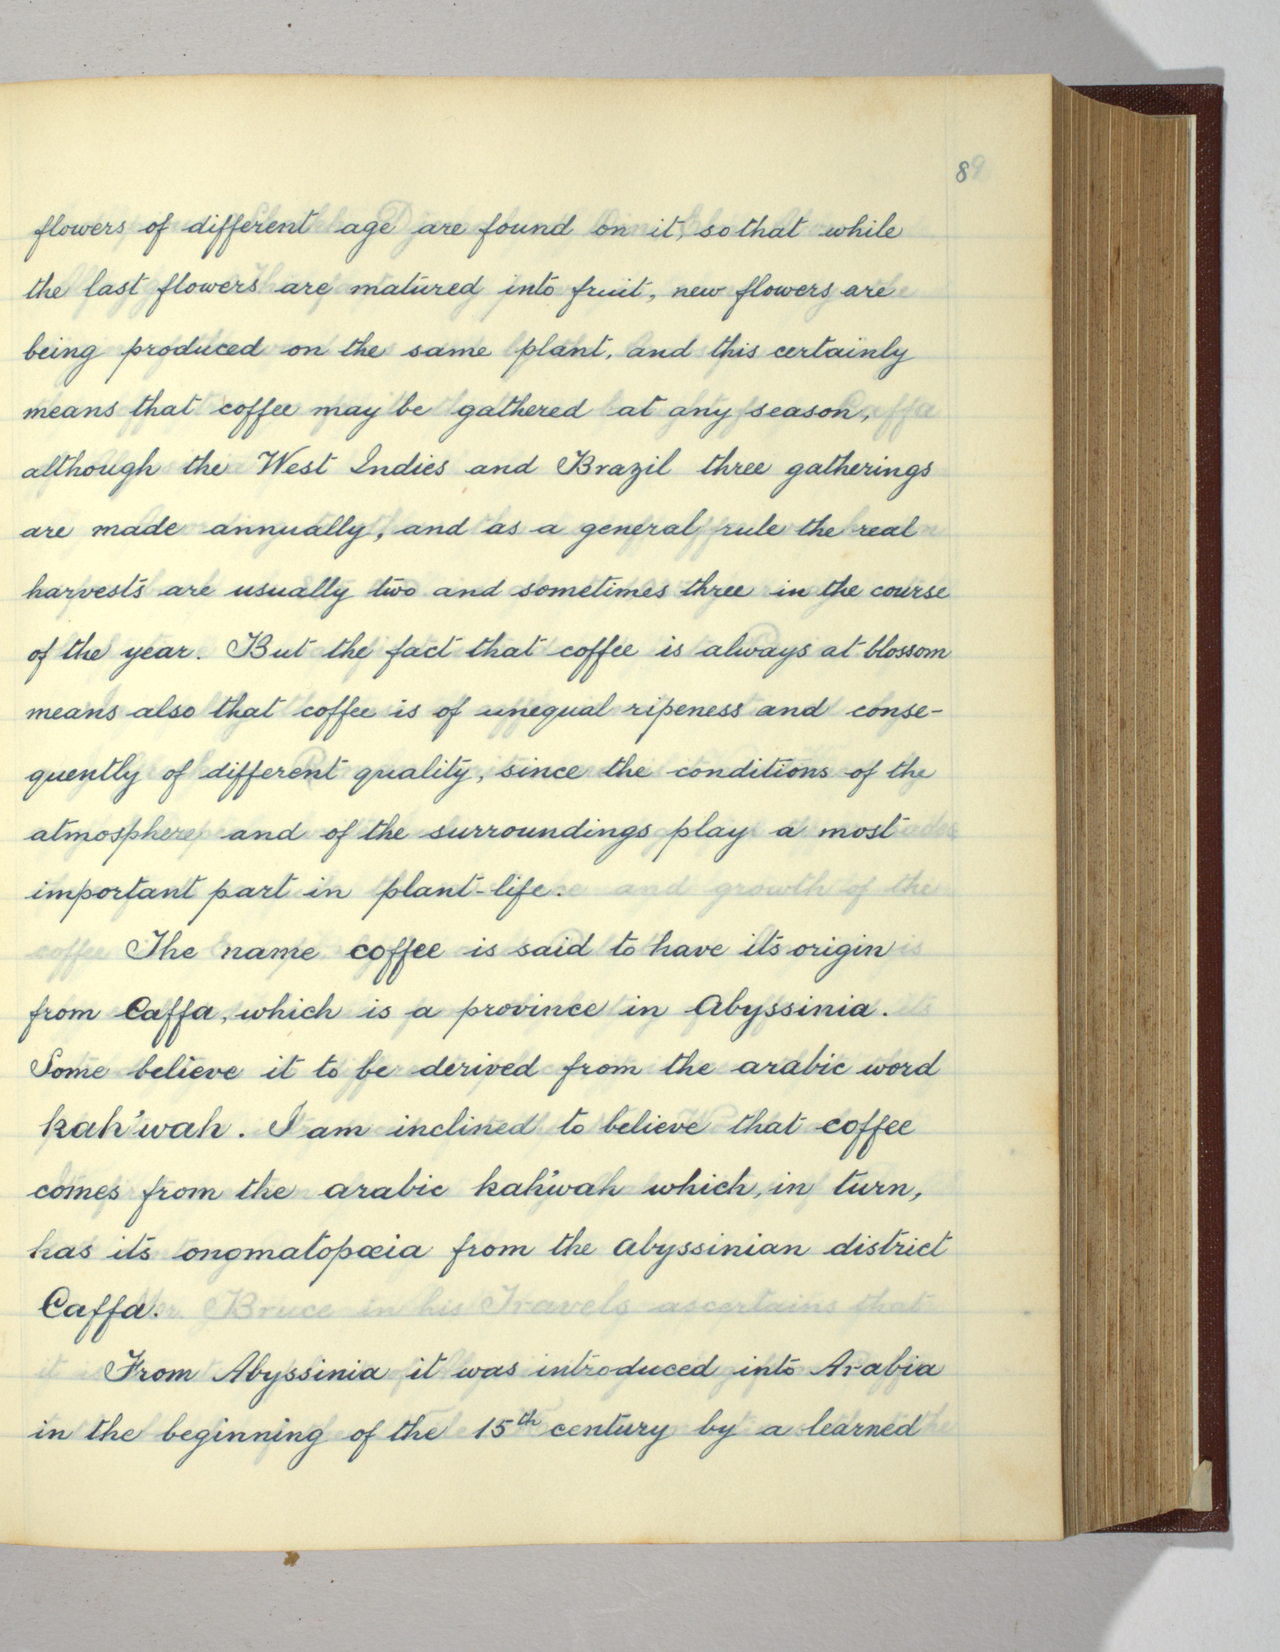 8
flowers of different age are found on it, so that while
the last flowers are matured into fruit, new flowers are
being produced on the same plant, and this certainly
means that coffee may be gathered at any season,
although the West Indies and Brazil three gatherings
are made annually, and as a general rule the real
harvests are usually two and sometimes three in the course
of the year. But the fact that coffee is always at blossom
means also that coffee is of unequal ripeness and conse-
quently of different quality, since the conditions of the
atmosphere and of the surroundings play a most
important part in plant-life.
The name coffee is said to have its origin
from Caffa, which is a province in Abyssinia.
Some believe it to be derived from the arabic word
kah'wah. I am inclined to believe that coffee
comes from the arabic kah'wah which, in turn,
has its onomatopœia from the Abyssinian district
Caffa.
From Abyssinia it was introduced into Arabia
in the beginning of the 15th century by a learned